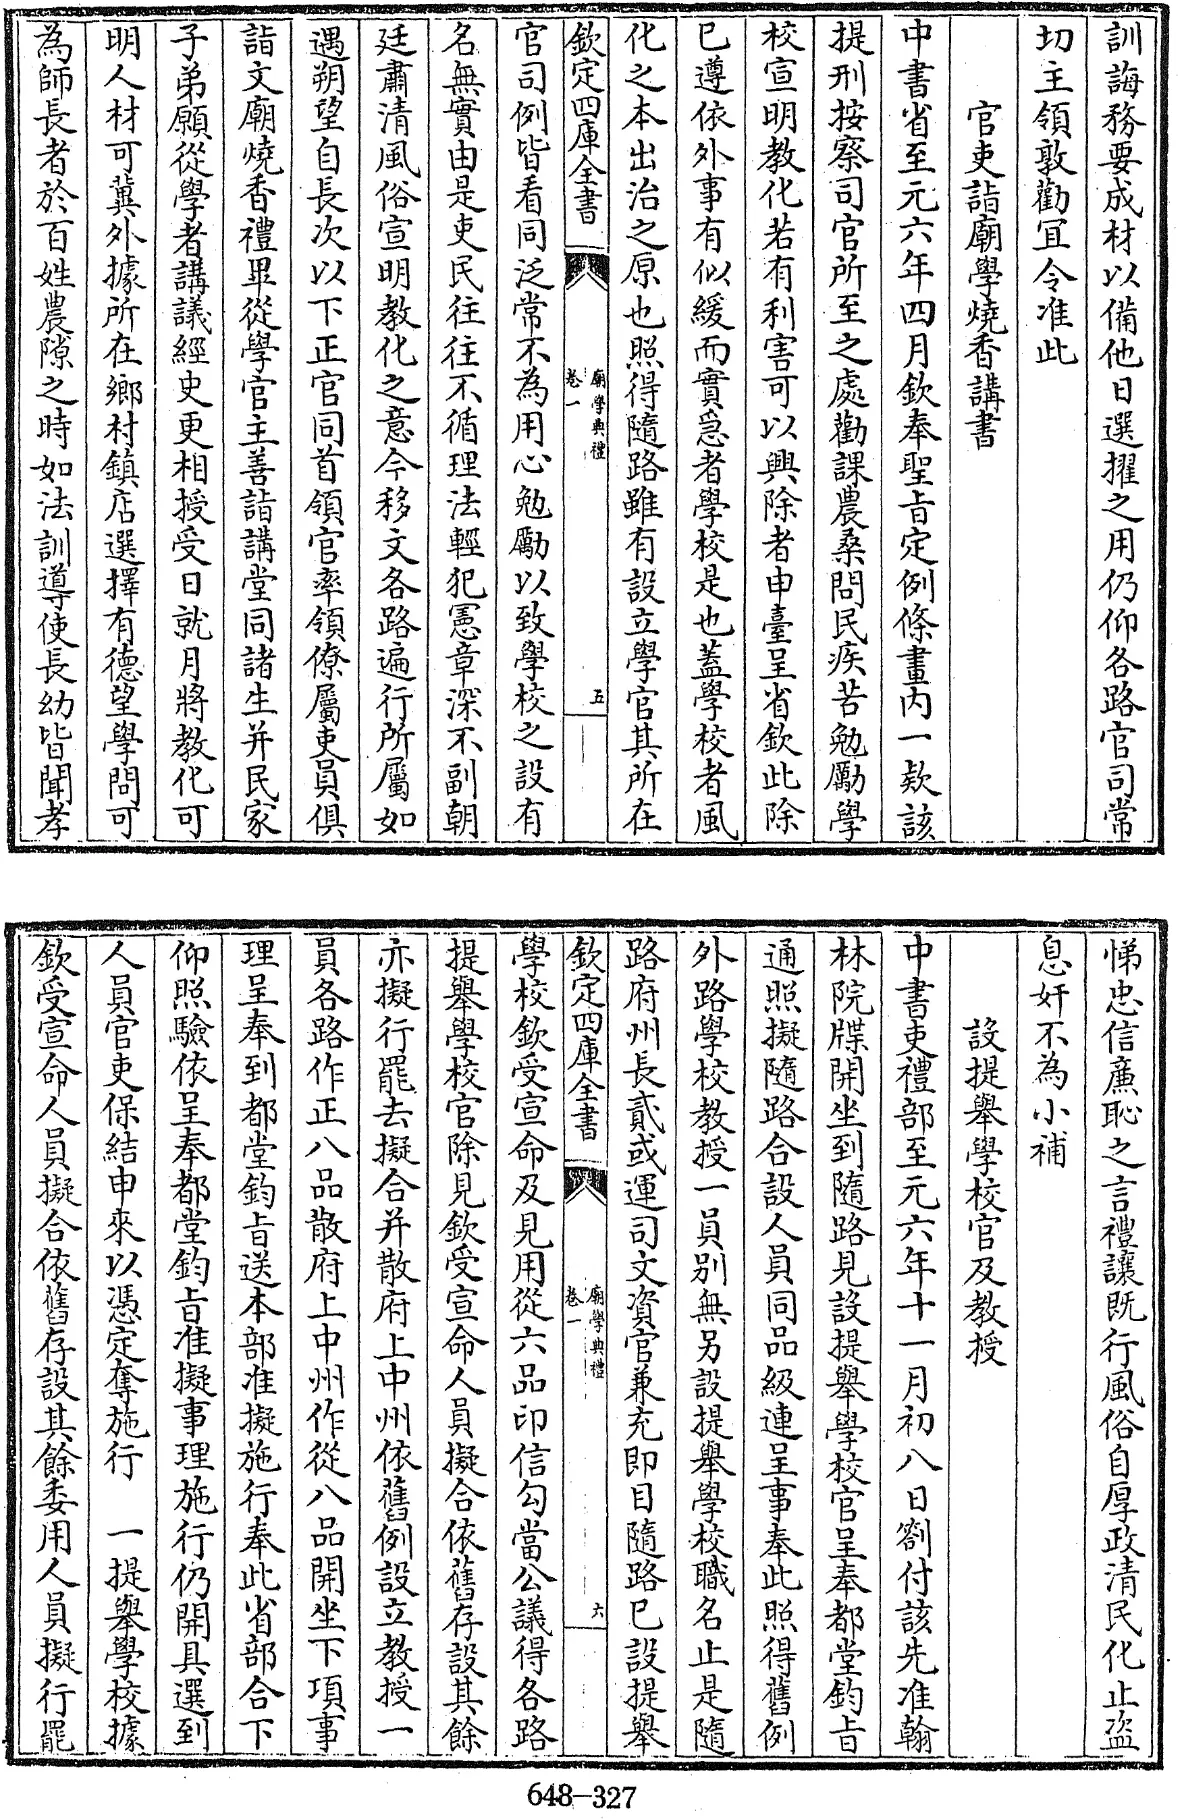 訓誨務要成材以備他日選擢之用仍仰各路官司常
切主領敦勸宜令准此
官吏詣廟學燒香講書
中書省至元六年四月欽奉聖㫖定例條畫内一款該
提刑按察司官所至之處勸課農桑問民疾苦勉勵學
校宣明教化若有利害可以興除者申臺呈省欽此除
已遵依外事有似緩而實急者學校是也蓋學校者風
化之本出治之原也照得隨路雖有設立學官其所在
欽定四庫全書
廟學典禮
卷一
五
官司例皆看同泛常不為用心勉勵以致學校之設有
名無實由是吏民往往不循理法輕犯憲章深不副朝
廷肅清風俗宣明教化之意今移文各路遍行所屬如
遇朔望自長次以下正官同首領官率領僚屬吏員俱
詣文廟燒香禮畢從學官主善詣講堂同諸生并民家
子弟願從學者講議經史更相授受日就月將教化可
明人材可冀外據所在鄉村鎮店選擇有德望學問可
為師長者於百姓農隙之時如法訓導使長幼皆聞孝
悌忠信廉恥之言禮讓既行風俗自厚政清民化止盜
息奸不為小補
設提舉學校官及教授
中書吏禮部至元六年十一月初八日劄付該先准翰
林院牒開坐到隨路見設提舉學校官呈奉都堂鈞㫖
通照擬隨路合設人員同品級連呈事奉此照得舊例
外路學校教授一員別無另設提舉學校職名止是隨
路府州長貳或運司文資官兼充即目隨路已設提舉
欽定四庫全書
廟學典禮
卷一
六
學校欽受宣命及見用從六品印信勾當公議得各路
提舉學校官除見欽受宣命人員擬合依舊存設其餘
亦擬行罷去擬合并散府上中州依舊例設立教授一
員各路作正八品散府上中州作從八品開坐下項事
理呈奉到都堂鈞㫖送本部准擬施行奉此省部合下
仰照驗依呈奉都堂鈞㫖准擬事理施行仍開具選到
人員官吏保結申來以憑定奪施行　一提舉學校據
欽受宣命人員擬合依舊存設其餘委用人員擬行罷
648-327